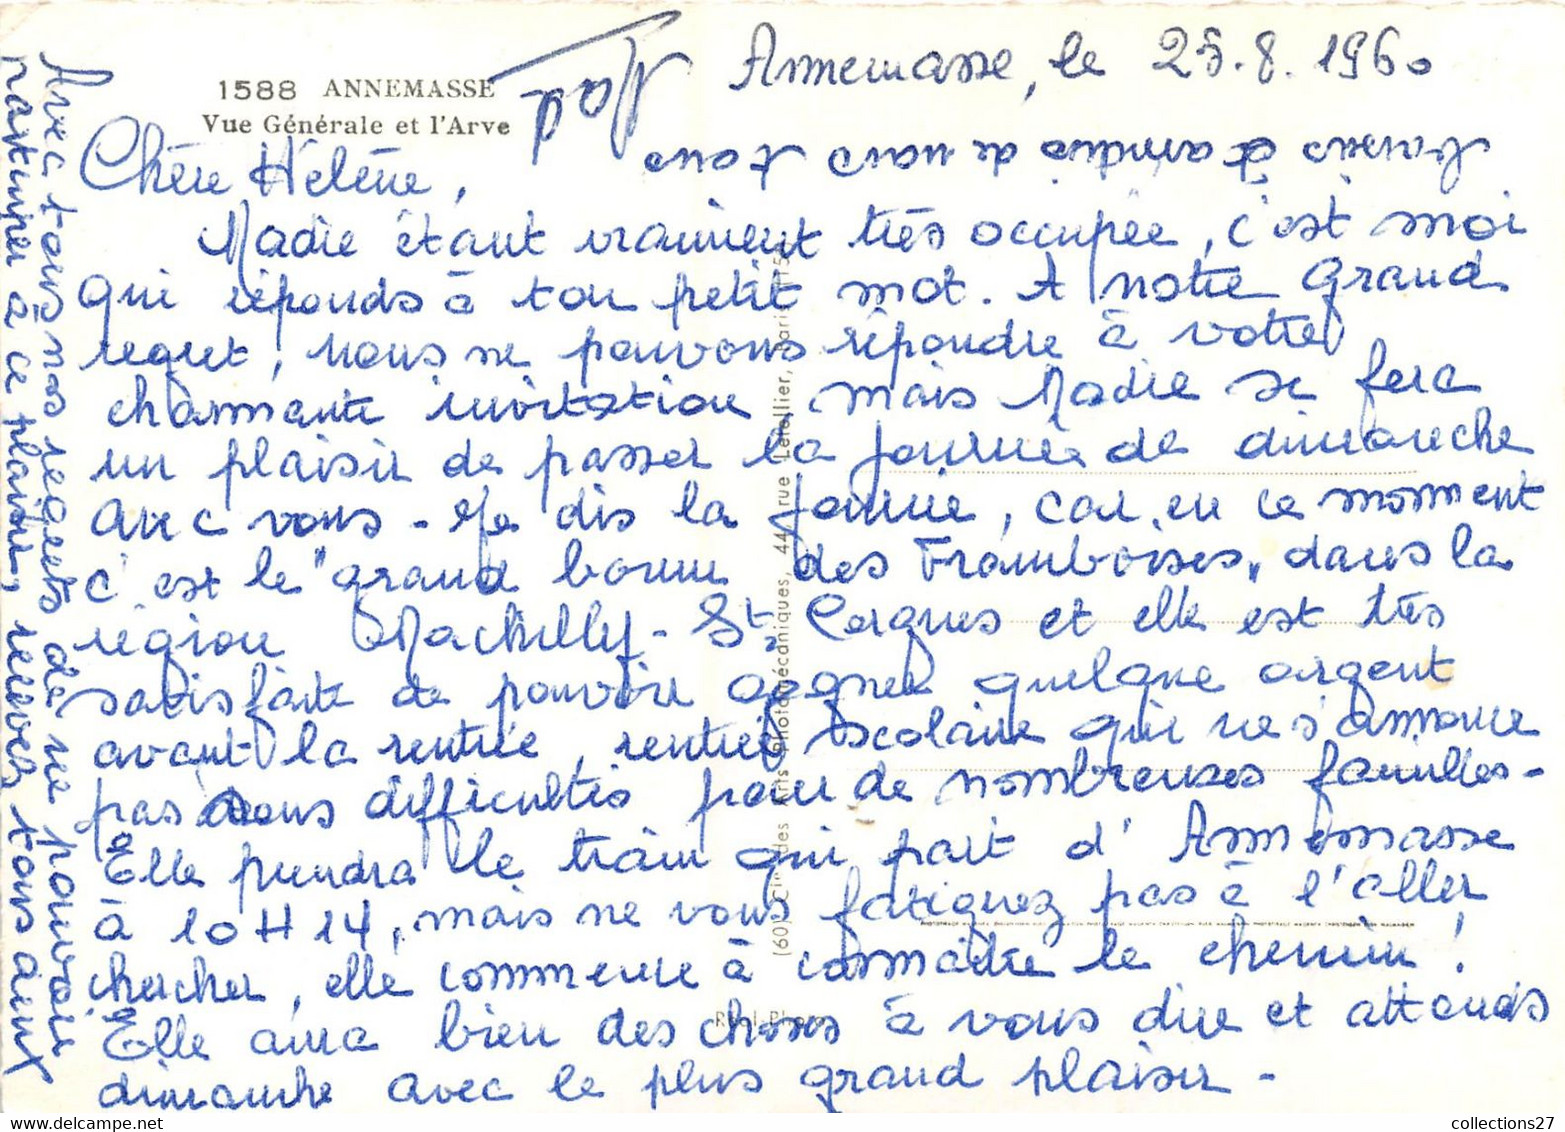 1588 ANNEMASSE
Vue Générale et l'Arve
Annemasse, le 25.8.1960
Chère Hélène,
Madie étant vraiment très occupée, c'est moi
qui réponds à ton petit mot. A notre grand
regret, nous ne pouvons répondre à votre
charmante invitation, mais Madie se fera
un plaisir de passer la journée de dimanche
avec vous - Je dis la journée, car, en ce moment
c'est le "grand boum des Framboises, dans la
région Machilly - St Cergues et elle est très
satisfaite de pouvoir gagner quelque argent
avant la rentrée, rentrée scolaire qui ne s'annonce
pas sans difficultés pour de nombreuses familles -
Elle prendra le train qui part d'Annemasse
à 10H14, mais ne vous fatiguez pas à l'aller
chercher, elle commence à connaître le chemin !
Elle aura bien des choses à vous dire et attends
dimanche avec le plus grand plaisir -
Avec tous nos regrets de ne pouvoir
participer à ce plaisir, recevez tous deux
baisers d' de nous tous
Mad
(60) Cie des Arts Photomécaniques, 44, rue Letellier, Paris-15e
Real-Photo
collections27